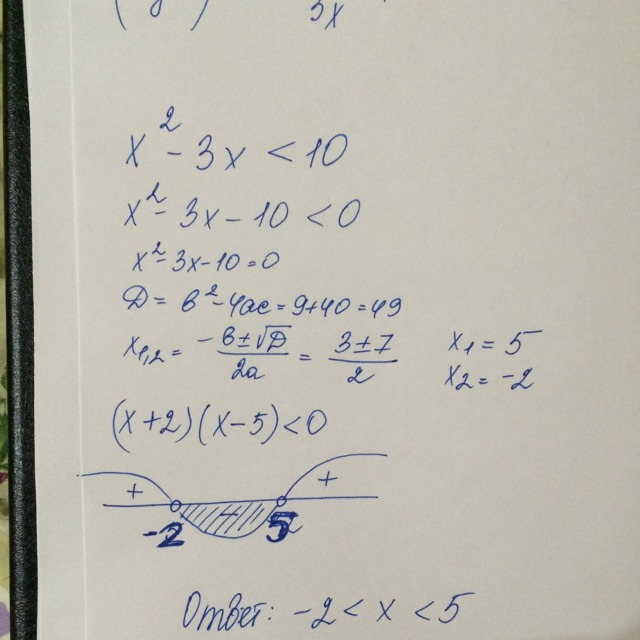 3x
x² - 3x < 10
x² - 3x - 10 < 0
x² - 3x - 10 = 0
D = b² - 4ac = 9 + 40 = 49
x₁,₂ = (-b ± √D) / 2a = (3 ± 7) / 2 x₁ = 5
x₂ = -2
(x + 2)(x - 5) < 0
+ - +
-2 5
Ответ: -2 < x < 5